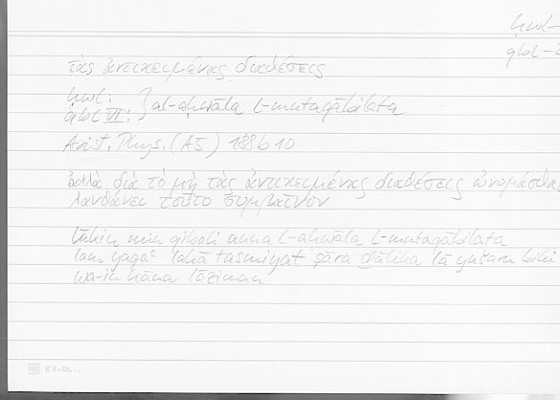 ḥwl
qbl
τὰς ἀντικειμένας διαθέσεις
ḥwl:
qbl VI: } al-aḥwāla l-mutaqābilata
Arist. Phys. (A5) 188b10
ἀλλὰ διὰ τὸ μὴ τὰς ἀντικειμένας διαθέσεις ὠνομάσθαι
λανθάνει τοῦτο συμβαῖνον
lākin min qibali anna l-aḥwāla l-mutaqābilata
lam yaqaʿ lahā tasmiyat ṣāra ḏālika lā yušʿaru bihi
wa-in kāna lāziman